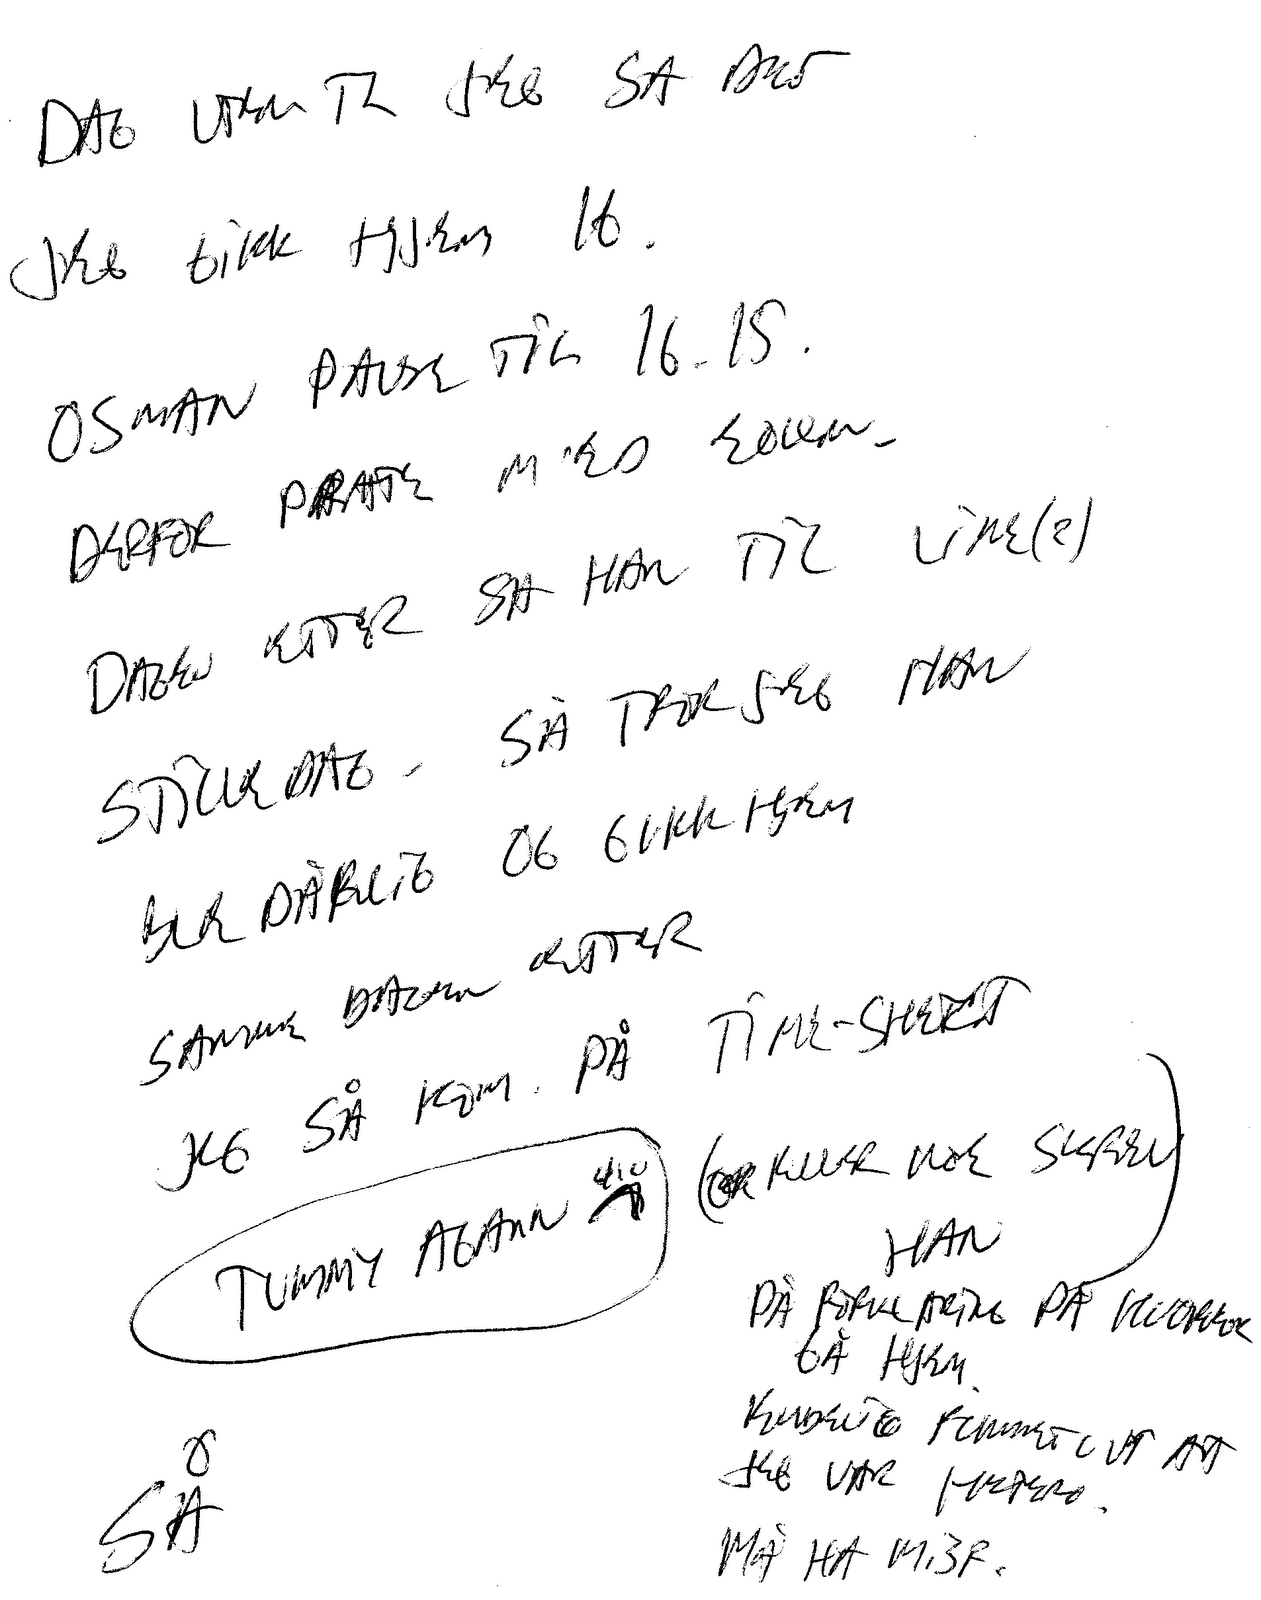 DAG UTEN TZ JEG SA DET
JEG GIKK HJEM 16.
OSMAN PAUSE TIL 16.15.
DERFOR PRATE MED
DAGEN ETTER SA HAN TIL LINE(2)
STILLE DAG. SÅ TROR JEG HAN
BLE DÅRLIG OG GIKK HJEM
SAMME DAGEN ETTER
JEG SÅ KOM. PÅ TIME-SHEET
TUMMY AGAIN 4/10 (ELLER NOE SKREV
HAN
PÅ FORKLARING PÅ HVORFOR
GÅ HJEM.
ENDELIG FUNNET UT AT
JEG VAR HETERO.
SÅ
MÅ HA